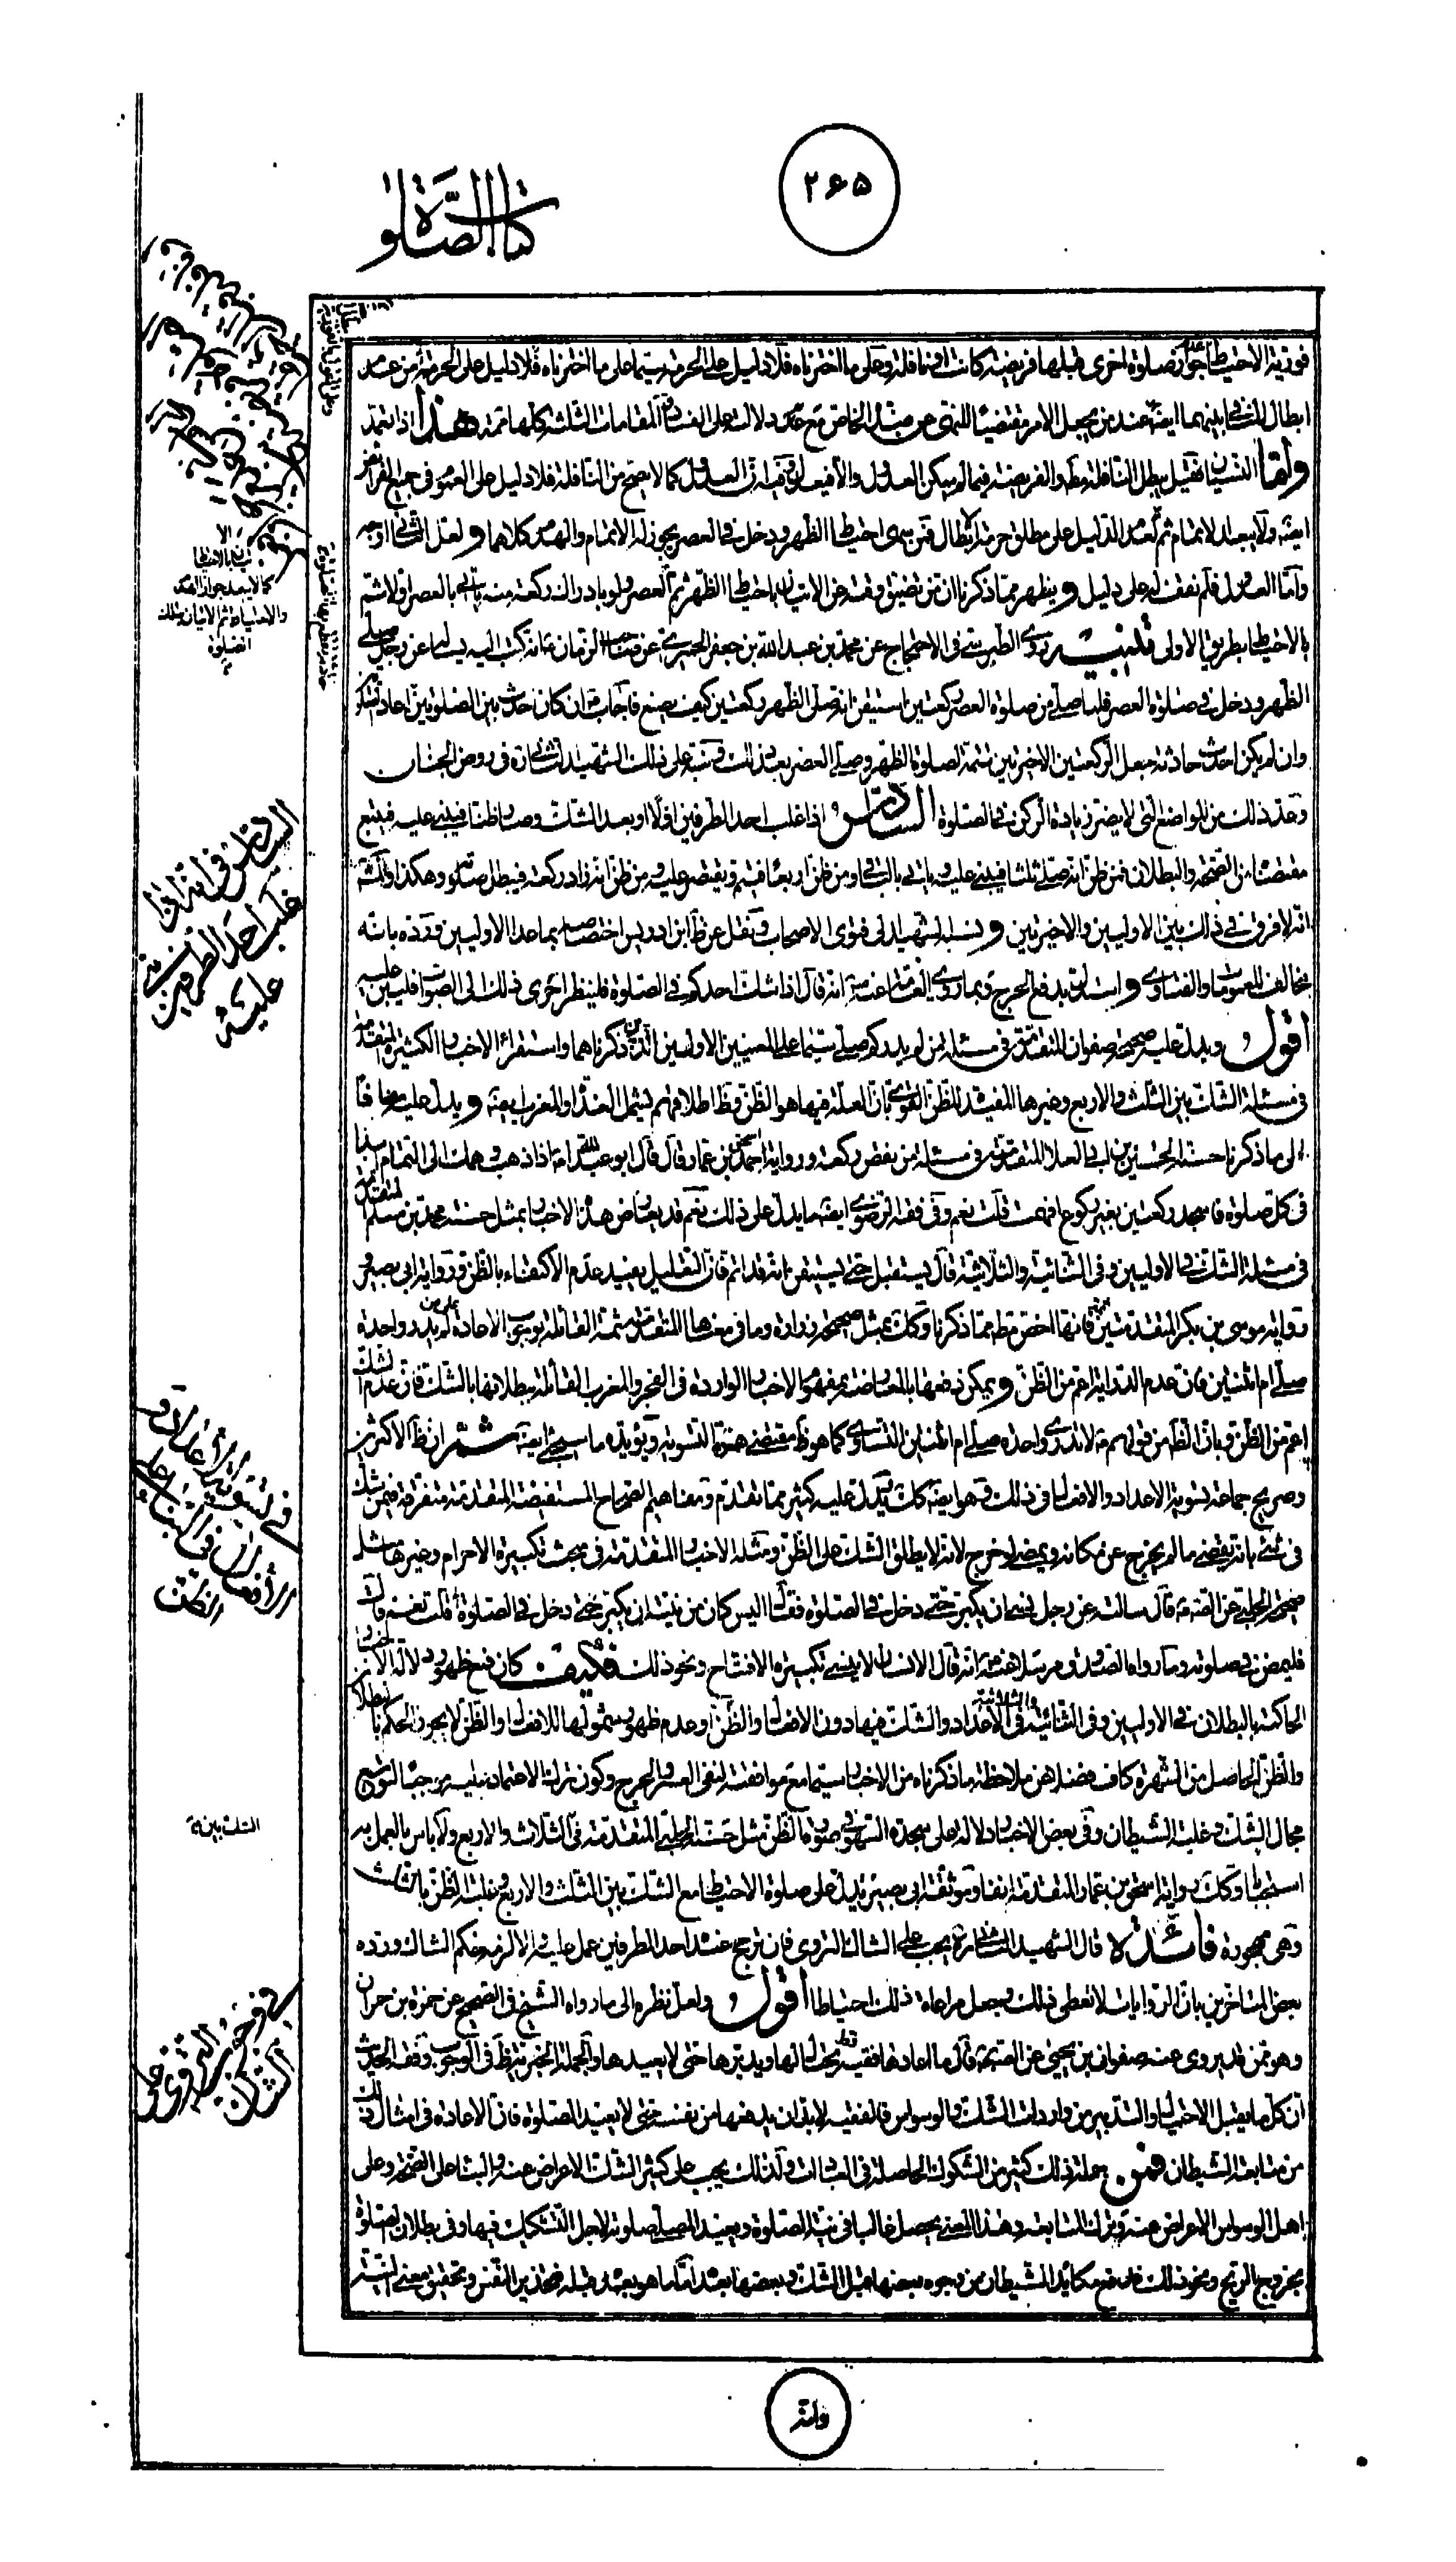 ۲۶۵
كتاب الصلوة
ابطال الثانى بينهما ايضا عند من يجعل الامر مقتضيا للنهى عن ضده الخاص مع عدم دلالته على الفساد فى المقامات الثلثة كلها هذا اذا تعمد
واما النسيان فقيل يبطل النافلة والفريضة فيما لم يمكن العدول كما لا يصح من النافلة فلا دليل على العموم فى جميع
ايضه ولا يبعد الاتمام ثم بعد الدليل على مطلق حرمة الابطال فمن سهى احتياط الظهر ودخل فى العصر يجوز له الاتمام والهدم كلاهما ولعل الثانى اوجه
واما العدول فلم نقف له على دليل ويظهر مما ذكرنا ان من تضيق وقته عن الاتيان باحتياط الظهر ثم العصر ولو بادراك ركعة منه ياتى بالعصر ولا
بالاحتياط بطريق الاولى تنبيه روى الطبرسى فى الاحتجاج عن محمد بن عبد الله بن جعفر الحميرى عن صاحب الزمان انه كتب اليه يساله عن رجل صلى
الظهر ودخل فى صلوة العصر فلما صلى من صلوة العصر ركعتين استيقن انه صلى الظهر ركعتين كيف يصنع فاجاب ان كان احدث بين الصلوتين حادثة
وان لم يكن احدث حادثة جعل الركعتين الاخيرتين تتمة لصلوة الظهر وصلى العصر بعد ذلك ونبه على ذلك الشهيد الثانى فى روض الجنان
وعد ذلك من المواضع التى لا يضر زيادة الركن فى الصلوة السادس اذا غلب احد الطرفين اولا او بعد الشك وصار ظنا فيبنى عليه فيتبع
مقتضاه من الصحة والبطلان فمن ظن انه صلى ثلثا فيبنى عليه وياتى بالباقى ومن ظن اربعا فيتم ويقتصر عليه ومن ظن انه زاد ركعة فيبطل صلوته وهكذا
انه لا فرق فى ذلك بين الاوليين والاخيرتين ونسبه الشهيد الى فتوى الاصحاب ونقل عن ظ ابن ادريس اختصاصه بما عدا الاوليين ورده بانه
مخالف للعمومات والفتاوى واستدل بدفع الحرج وبما روى العامة عنه ص انه قال اذا شك احدكم فى الصلوة فلينظر احرى ذلك الى الصواب فليبن عليه
اقول ويدل عليه صحيحة صفوان المتقدمة فى مسئلة من لم يدر كم صلى سيما على المعنيين الاولين الذين ذكرناهما واستقراء الاخبار الكثيرة المتقدمة
فى مسئلة الشك بين الثلث والاربع وغيرها المفيد للظن القوى بان العلة فيها هو الظن وظ اطلاقهم يشمل الغداة والمغرب ايضه ويدل عليه مضافا
الى ما ذكرنا حسنة الحسين بن ابى العلا المتقدمة فى مسئلة من نقص ركعة ورواية اسحق بن عمار قال قال ابو عبد الله ع اذا ذهب وهمك الى التمام ابدا
فى كل صلوة فاسجد سجدتين بغير ركوع افهمت قلت نعم وفى فقه الرضوى ايضه ما يدل على ذلك نعم قد يعارض هذه الاخبار بمثل حسنة محمد بن مسلم المتقدمة
فى مسئلة الشك فى الاوليين وفى الثنائية والثلاثية قال يستقبل حتى يستيقن انه قد اتم فان التعليل يفيد عدم الاكتفاء بالظن ورواية ابى بصير
ورواية موسى بن بكر المتقدمتين فانها اخص مط مما ذكرنا وكك بمثل صحيحة زرارة وما فى معناها المتقدمة ثمة القائلة بوجوب الاعادة على من لم يدر واحدة
صلى ام ثنتين فان عدم الدراية اعم من الظن ويمكن دفعها بالمعارضة بمفهوم الاخبار الواردة فى الفجر والمغرب القائلة ببطلانها بالشك فان عدم الشك
اعم من الظن وبان الظ من قولهم ع لا تدرى واحدة صلى ام ثنتين التساوى كما هو ظ مقتضى همزة التسوية ويؤيده ما سيجئ ايضه ثم ان ظ الاكثر
وصريح جماعة تسوية الاعداد والافعال فى ذلك وهو ايضه كك ويدل عليه كثير مما تقدم ومفاهيم الصحاح المستفيضة المتقدمة متفرقة فيمن شك
فى شئ بانه يقضى ما لم يخرج عن مكانه ويمضى لو خرج لانه لا يطلق الشك على الظن ومثله الاخبار المتقدمة فى مبحث تكبيرة الاحرام وغيرها مثل
صحيحة الحلبى عن الص ع قال سالته عن رجل نسى ان يكبر حتى دخل فى الصلوة فقال اليس كان من نيته ان يكبر حتى دخل فى الصلوة قلت نعم قال
فليمض فى صلوته وما رواه الصدوق مرسلا عنه ع انه قال الانسان لا ينسى تكبيرة الافتتاح ونحو ذلك فكيف كان فمع ظهور دلالة الاخبار
الحاكمة بالبطلان فى الاوليين وفى الثنائية والثلاثية فى الاعداد والشك فيها دون الافعال والظن او عدم ظهور شمولها للافعال والظن لا يجوز الحكم بالبطلان
والظن الحاصل من الشهرة كاف فضلا عن ملاحظة ما ذكرناه من الاخبار سيما مع موافقته لنفى العسر والحرج وكون ترك الاعتماد عليه موجبا لتوسيع
مجال الشك وغلبة الشيطان وفى بعض الاخبار دلالة على سجدة السهو فى صورة الظن مثل حسنة الحلبى المتقدمة فى الثلاث والاربع ولا باس بالعمل به
استحبابا وكك رواية اسحق بن عمار المتقدمة انفا وموثقة ابى بصير تدل على صلوة الاحتياط مع الشك بين الثلث والاربع وغلبة الظن بالثلث
وهى مهجورة فائدة قال الشهيد الثانى ره يجب على الشاك التروى فان ترجح عنده احد الطرفين عمل عليه والا لزمه حكم الشاك ورده
بعض المتاخرين بان الروايات لا تعطى ذلك وجعل مراعاة ذلك احتياطا اقول ولعل نظره الى ما رواه الشيخ فى الصحيح عن حمزة بن حمران
وهو ممن قد يروى عنه صفوان بن يحيى عن الص ع قال ما اعادها فقيه قط يحتال لها ويدبرها حتى لا يعيدها والجملة الخبرية ظ فى الوجوب وفقه الحديث
ان كل ما يقبل الاحتيال والتدبير من واردات الشك والوسواس فالفقيه لا بد ان يدفعها من نفسه حتى لا يعيد الصلوة فان الاعادة فى امثال ذلك
من متابعة الشيطان فمن جملة ذلك كثير من الشكوك الحاصلة فى العبادات ولذلك يجب على كثير الشك الاعراض عنه والبناء على الصحة وعلى
اهل الوسواس الاعراض عنه وترك المتابعة وهذا المعنى يحصل غالبا فى نية الصلوة ويعيد المصلى صلوته لاجل التشكيك فيها وفى بطلان الصلوة
بخروج الريح ونحو ذلك فان دفع مكائد الشيطان من وجوه بعضها قبل الشك وبعضها بعده
السادس فى انه اذا
غلب احد الطرفين
عليه
فى تسوية الاعداد و
الافعال فى البناء على
الظن
الشك بين
فى وجوب التروى على
الشاك
وانه